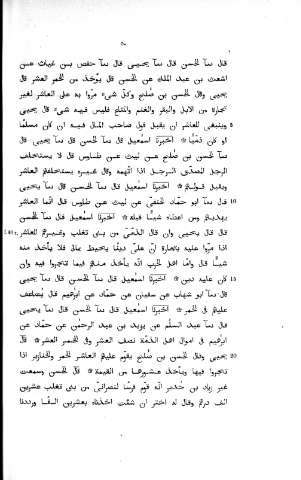 ٥٠
قال نا الحسن قال نا يحيى قال نا حفص بن غياث عن
اشعث بن عبد الملك عن الحسن قال يوخذ من الخمر العشر قال
يحيى وقال الحسن بن صالح وكل شىء مروا به على العاشر لغير
تجارة من الابل والبقر والغنم والمتاع فليس فيه شىء قال يحيى
5 وينبغى للعاشر ان يقبل قول صاحب المال فيه ان كان مسلما
او كان ذميا ۞ اخبرنا اسمعيل قال نا الحسن قال نا يحيى قال
نا حسن بن صالح عن ليث عن طاوس قال لا يستحلف
الرجل المصدق الرجل اذا اتهمه وقال غيره يستحلفهم العاشر
ويقبل قولهم ۞ اخبرنا اسمعيل قال نا الحسن قال نا يحيى
10 قال نا ابو حماد الحنفى عن ليث عن طاوس قال اذا
يهديهم ومن اعطاه شيئا قبله ۞ اخبرنا اسمعيل قال نا الحسن
قال قال يحيى وان قال الذمى من بنى تغلب وغيرهم للعاشر
اذا مروا عليه بتجارة ان على دينا يحيط بمالى فلا ياخذ منه
شيئا قال واما اهل الحرب انه ياخذ منهم فيما تاجروا فيه وان
15 كان عليه دين ۞ اخبرنا اسمعيل قال نا الحسن قال نا يحيى
قال نا ابو شهاب عن سفيان عن حماد عن ابراهيم قال يضاعف
عليهم فى الخمر ۞ اخبرنا اسمعيل قال نا الحسن قال نا يحيى
قال نا عبد السلم عن يزيد بن عبد الرحمن عن حماد عن
ابراهيم فى اموال اهل الذمة نصف العشر وفى الخمر العشر قال
20 يحيى وقال الحسن بن صالح يقوم عليهم العاشر الخمر والخنازير اذا
تاجروا فيها وياخذ عشورها من القيمة ۞ قال الحسن وسمعت
غير زياد بن حدير انه قوم فرسا لنصرانى من بنى تغلب عشرين
الف درهم وقال له اختر ان شئت اخذناه بعشرين الفا ورددنا